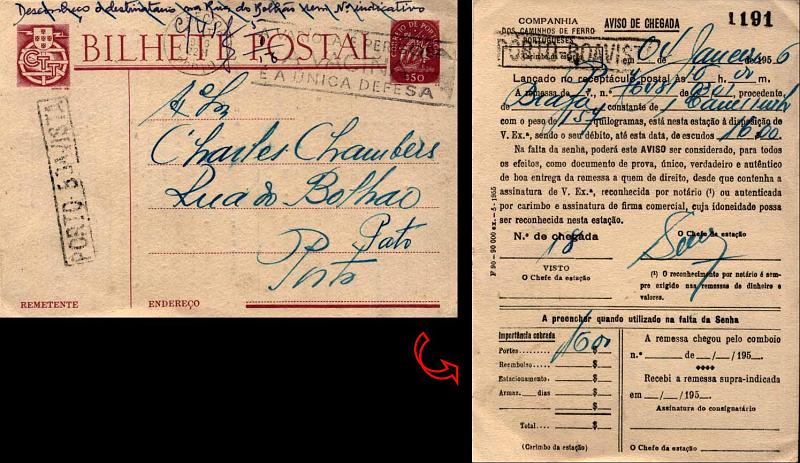 Desconheço o destinatario na Rua do Bolhão sem Nº indicativo
BILHETE POSTAL
CTT
$50
A VACINA
É A ÚNICA DEFESA
PORTO-BOAVISTA
Charles Chambers
Rua do Bolhão
Pato
Porto
REMETENTE
ENDEREÇO
COMPANHIA
DOS CAMINHOS DE FERRO
PORTUGUESES
AVISO DE CHEGADA
1191
PORTO-BOAVISTA
(Carimbo da estação)
em 04 Janeiro 1956
Lançado no receptáculo postal às 16 h. 00 m.
A remessa de n.º 76081 procedente
de Braga, constante de 1
com o peso de 154 quilogramas, está nesta estação à disposição
de V. Ex.ª, sendo o seu débito, até esta data, de escudos 16.00
Na falta da senha, poderá este AVISO ser considerado, para todos
os efeitos, como documento de prova, único, verdadeiro e autêntico
de boa entrega da remessa a quem de direito, desde que contenha a
assinatura de V. Ex.ª, reconhecida por notário (¹) ou autenticada
por carimbo e assinatura de firma comercial, cuja idoneidade possa
ser reconhecida nesta estação.
F 90 - 90 000 ex. - 5 - 1955
N.º de chegada
18
O Chefe da estação
VISTO
O Chefe da estação
(¹) O reconhecimento por notário é sem-
pre exigido nas remessas de dinheiro e
valores.
A preencher quando utilizado na falta da Senha
Importância cobrada
Portes 16.00 $
Reembolso $
Estacionamento $
Armaz. dias $
$
Total $
(Carimbo da estação)
A remessa chegou pelo comboio
n.º de / / 195 .
Recebi a remessa supra-indicada
em / / 195 .
Assinatura do consignatário
O Chefe da estação